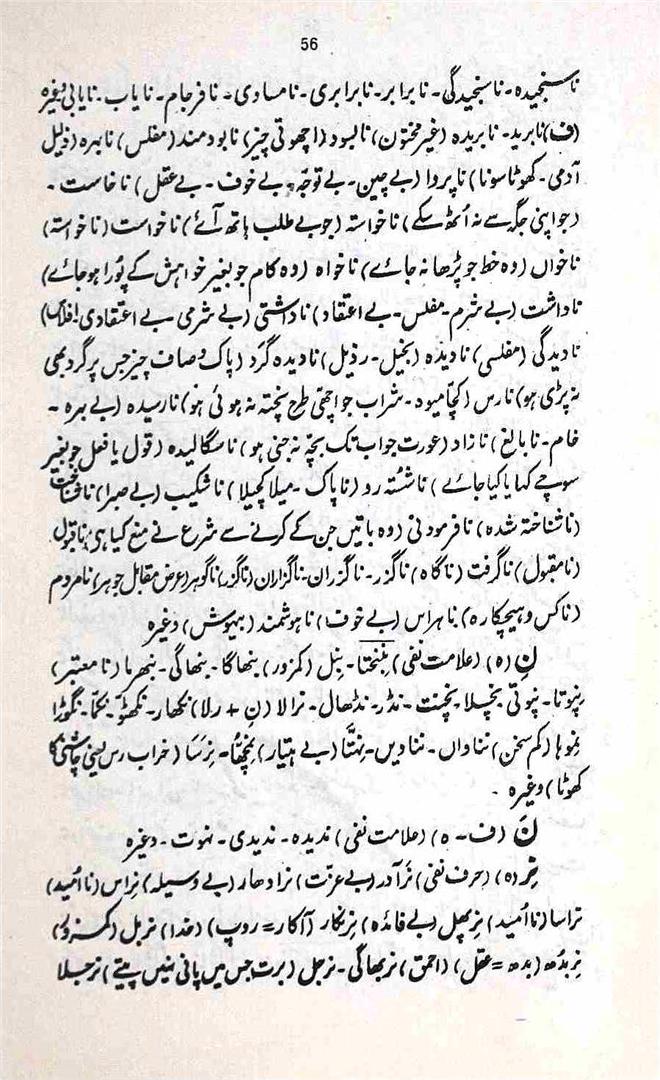 56
ناسنجیدہ۔ ناسنجیدگی۔ نابرابر۔ نابرابری۔ نامساوی۔ نافرجام۔ نایاب۔ نایابی وغیرہ
(ف) نابرید۔ نابریدہ (غیر مختون) نابسود (اچھوتی چیز) نابودمند (مفلس) نابہرہ (ذلیل
آدمی۔ کھوٹا سونا) ناپروا (بے چین۔ بے توجہ۔ بے خوف۔ بے عقل) ناخاست۔
(جو اپنی جگہ سے نہ اُٹھ سکے) ناخواستہ (جو بے طلب ہاتھ آئے) ناخواست (ناخواستہ)
ناخواں (وہ خط جو پڑھا نہ جائے) ناخواہ (وہ کام جو بغیر خواہش کے پُورا ہو جائے)
ناداشت (بے شرم۔ مفلس۔ بے اعتقاد) ناداشتی (بے شرمی بے اعتقادی۔ افلاس)
نادیدگی (مفلسی) نادیدہ (بخیل۔ رذیل) نادیدہ گرد (پاک و صاف چیز جس پر گرد بھی
نہ پڑی ہو) نارس (کچا میوہ۔ شراب جو اچھی طرح پختہ نہ ہوئی ہو) نارسیدہ (بے بہرہ۔
خام۔ نابالغ) نازاد (عورت جو اب تک بچہ نہ جنی ہو) ناسگالیدہ (قول یا فعل جو بغیر
سوچے کہا یا کیا جائے) ناشُستہ رو (ناپاک۔ میلا کچیلا) ناشکیب (بے صبرا) ناشناخت
(ناشناختہ شدہ) نافرمودنی (وہ باتیں جن کے کرنے سے شرع نے منع کیا ہو) ناقبول
(نامقبول) ناگرفت (ناگاہ) ناگزر۔ ناگزران۔ ناگزاران (ناگزر) ناگوہر (عرض مقابل جوہر) نامردم
(ناکس و ہیچکارہ) ناہراس (بے خوف) ناہوشمند (بیہوش) وغیرہ
نِ (ہ) (علامت نفی) نِبل (کمزور) نبھاگا۔ نبھاگی۔ نبھرما (نامعتبر)
نپوتا۔ نپوتی نچلا نچنت۔ نڈر۔ نڈھال۔ نرالا (نِ + رلا) نکھار۔ نکھٹو۔ نکمّا۔ نگوڑا
(کم سخن) نناواں۔ نناویں۔ نہتّا (بے ہتیار) نِرَسَا (خراب رس یعنی چاشنی کا
کھوٹا) وغیرہ۔
نَ (ف۔ ہ) (علامت نفی) ندیدہ۔ ندیدی۔ نہوت۔ وغیرہ
نِر (ہ) (حرف نفی) نَرآدر (بے عزت) نرادھار (بے وسیلہ) نِراس (ناامید)
نراسا (ناامید) نِرپھل (بے فائدہ) نِرنکار (آکار = روپ) (خدا) نربل (کمزور)
نِربُدھ (بدھ = عقل) (احمق) نربھاگی۔ نرجل (برت جس میں پانی نہیں پیتے) نرجلا